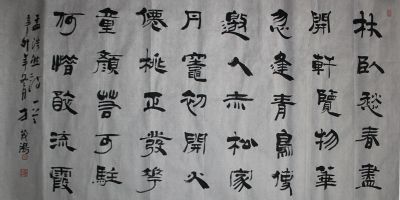 林臥愁春盡
開軒覽物華
忽逢青鳥使
邀入赤松家
丹竈初開火
僊桃正發花
童顏若可駐
何惜醉流霞
孟浩然詩一首
辛卯年